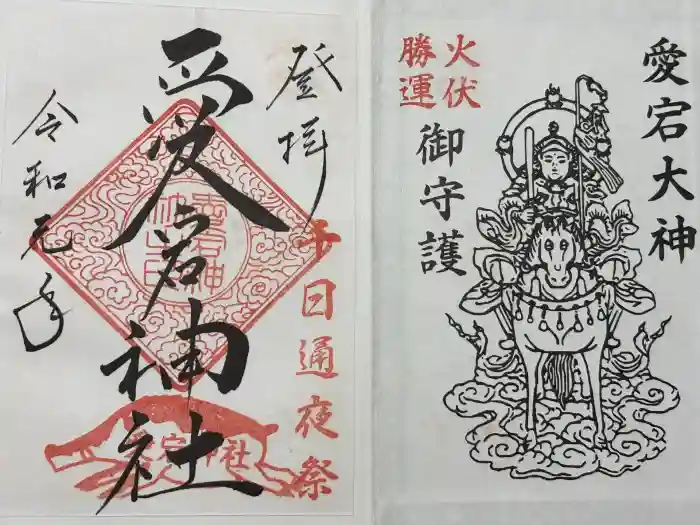 愛宕大神
火伏
勝運
御守護
登拝
愛宕神社
千日通夜祭
令和元年
愛宕神社